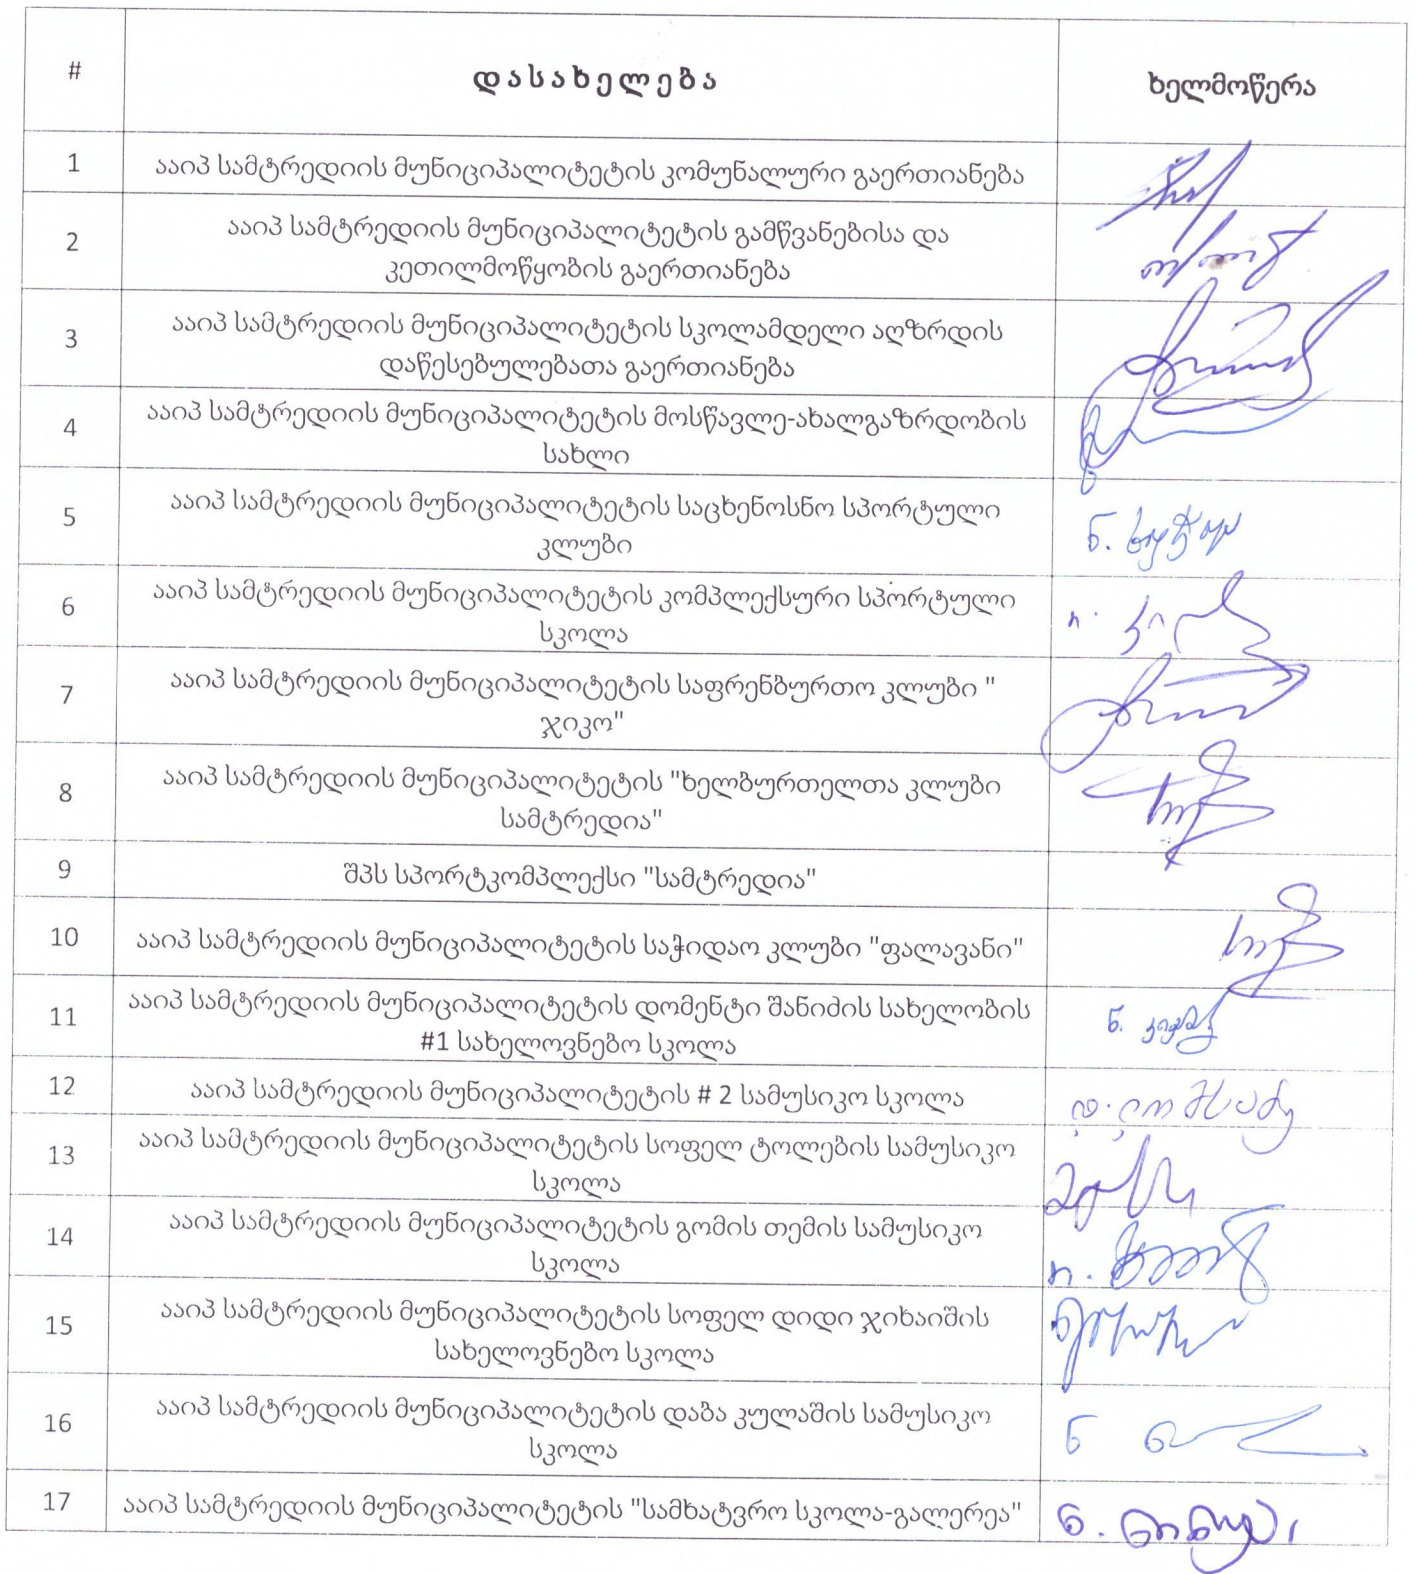 # დასახელება ხელმოწერა
1 ააიპ სამტრედიის მუნიციპალიტეტის კომუნალური გაერთიანება
2 ააიპ სამტრედიის მუნიციპალიტეტის გამწვანებისა და
კეთილმოწყობის გაერთიანება
3 ააიპ სამტრედიის მუნიციპალიტეტის სკოლამდელი აღზრდის
დაწესებულებათა გაერთიანება
4 ააიპ სამტრედიის მუნიციპალიტეტის მოსწავლე-ახალგაზრდობის
სახლი
5 ააიპ სამტრედიის მუნიციპალიტეტის საცხენოსნო სპორტული
კლუბი
ნ.
6 ააიპ სამტრედიის მუნიციპალიტეტის კომპლექსური სპორტული
სკოლა
7 ააიპ სამტრედიის მუნიციპალიტეტის საფრენბურთო კლუბი "
ჯიკო"
8 ააიპ სამტრედიის მუნიციპალიტეტის "ხელბურთელთა კლუბი
სამტრედია"
9 შპს სპორტკომპლექსი "სამტრედია"
10 ააიპ სამტრედიის მუნიციპალიტეტის საჭიდაო კლუბი "ფალავანი"
11 ააიპ სამტრედიის მუნიციპალიტეტის დომენტი შანიძის სახელობის
#1 სახელოვნებო სკოლა
ნ.
12 ააიპ სამტრედიის მუნიციპალიტეტის # 2 სამუსიკო სკოლა
13 ააიპ სამტრედიის მუნიციპალიტეტის სოფელ ტოლების სამუსიკო
სკოლა
14 ააიპ სამტრედიის მუნიციპალიტეტის გომის თემის სამუსიკო
სკოლა
15 ააიპ სამტრედიის მუნიციპალიტეტის სოფელ დიდი ჯიხაიშის
სახელოვნებო სკოლა
16 ააიპ სამტრედიის მუნიციპალიტეტის დაბა კულაშის სამუსიკო
სკოლა
ნ
17 ააიპ სამტრედიის მუნიციპალიტეტის "სამხატვრო სკოლა-გალერეა"
ნ.